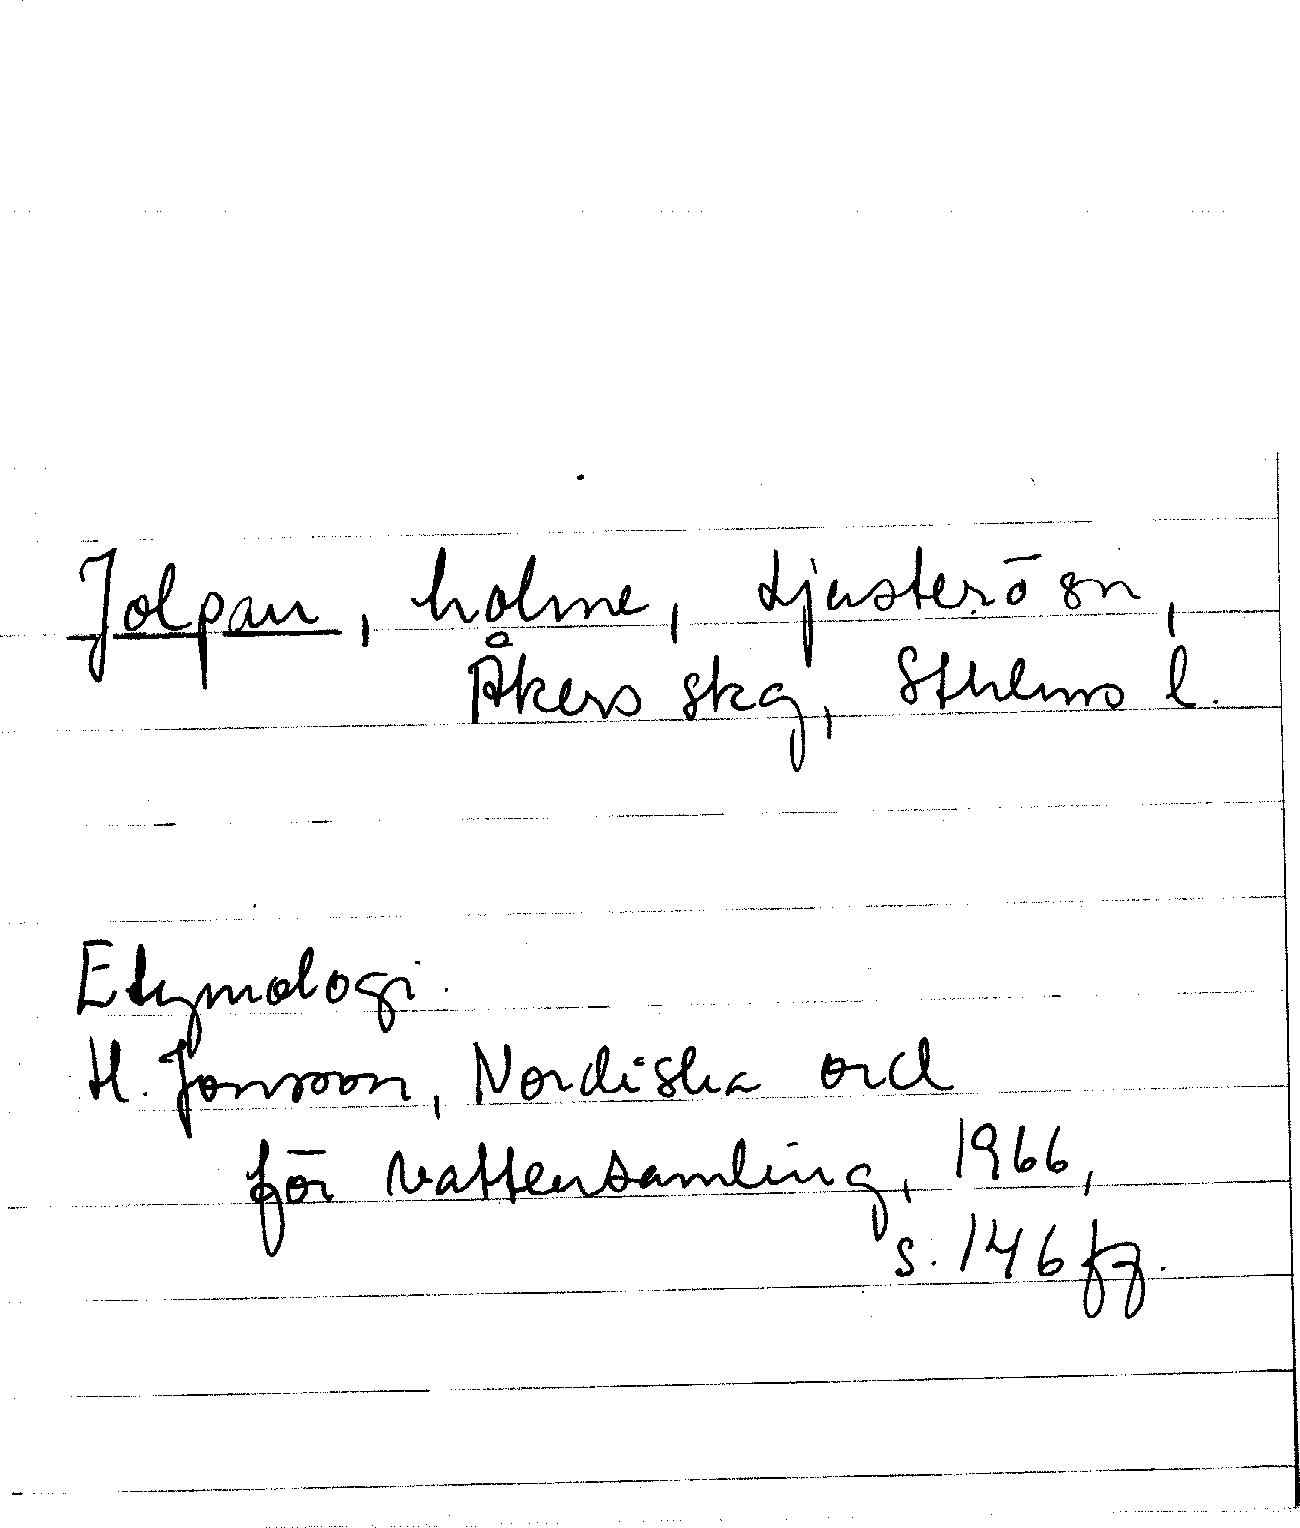 Jolpan, holme, Ljusterö sn,
Åkers skg, Sthlms l.
Etymologi.
H. Jonsson, Nordiska ord
för vattensamling, 1966,
s. 146 ff.